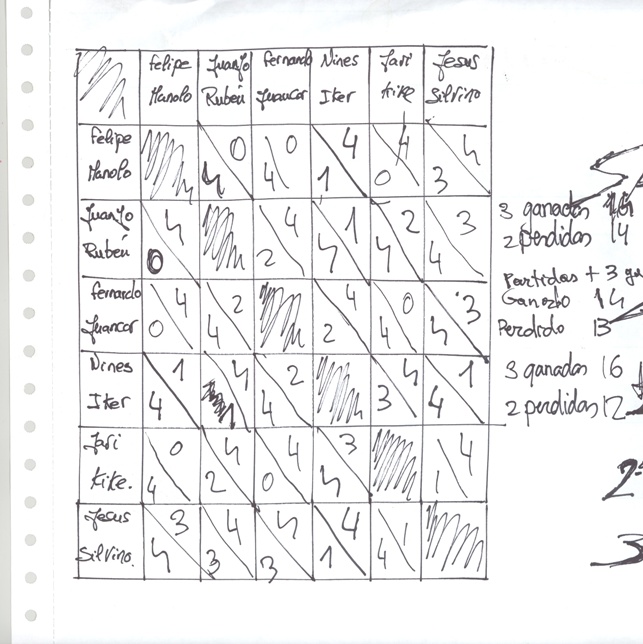 Felipe Juanjo Fernando Nines Javi Jesus
Manolo Rubén Juancar Iker Kike Silvino
Felipe 0 0 4 4 4
Manolo 4 4 1 0 3
Juanjo 4 4 1 2 3
Rubén 0 2 4 4 4
Fernando 4 2 4 0 3
Juancar 0 4 2 4 4
Nines 1 4 2 4 1
Iker 4 1 4 3 4
Javi 0 4 4 3 4
Kike. 4 2 0 4 1
Jesus 3 4 4 4 1
Silvino. 4 3 3 1 4
3 ganados
2 perdidas 14
Partidas + 3 ga
Ganado 14
Perdido 13
3 ganadas 16
2 perdidas 12
2ª
3